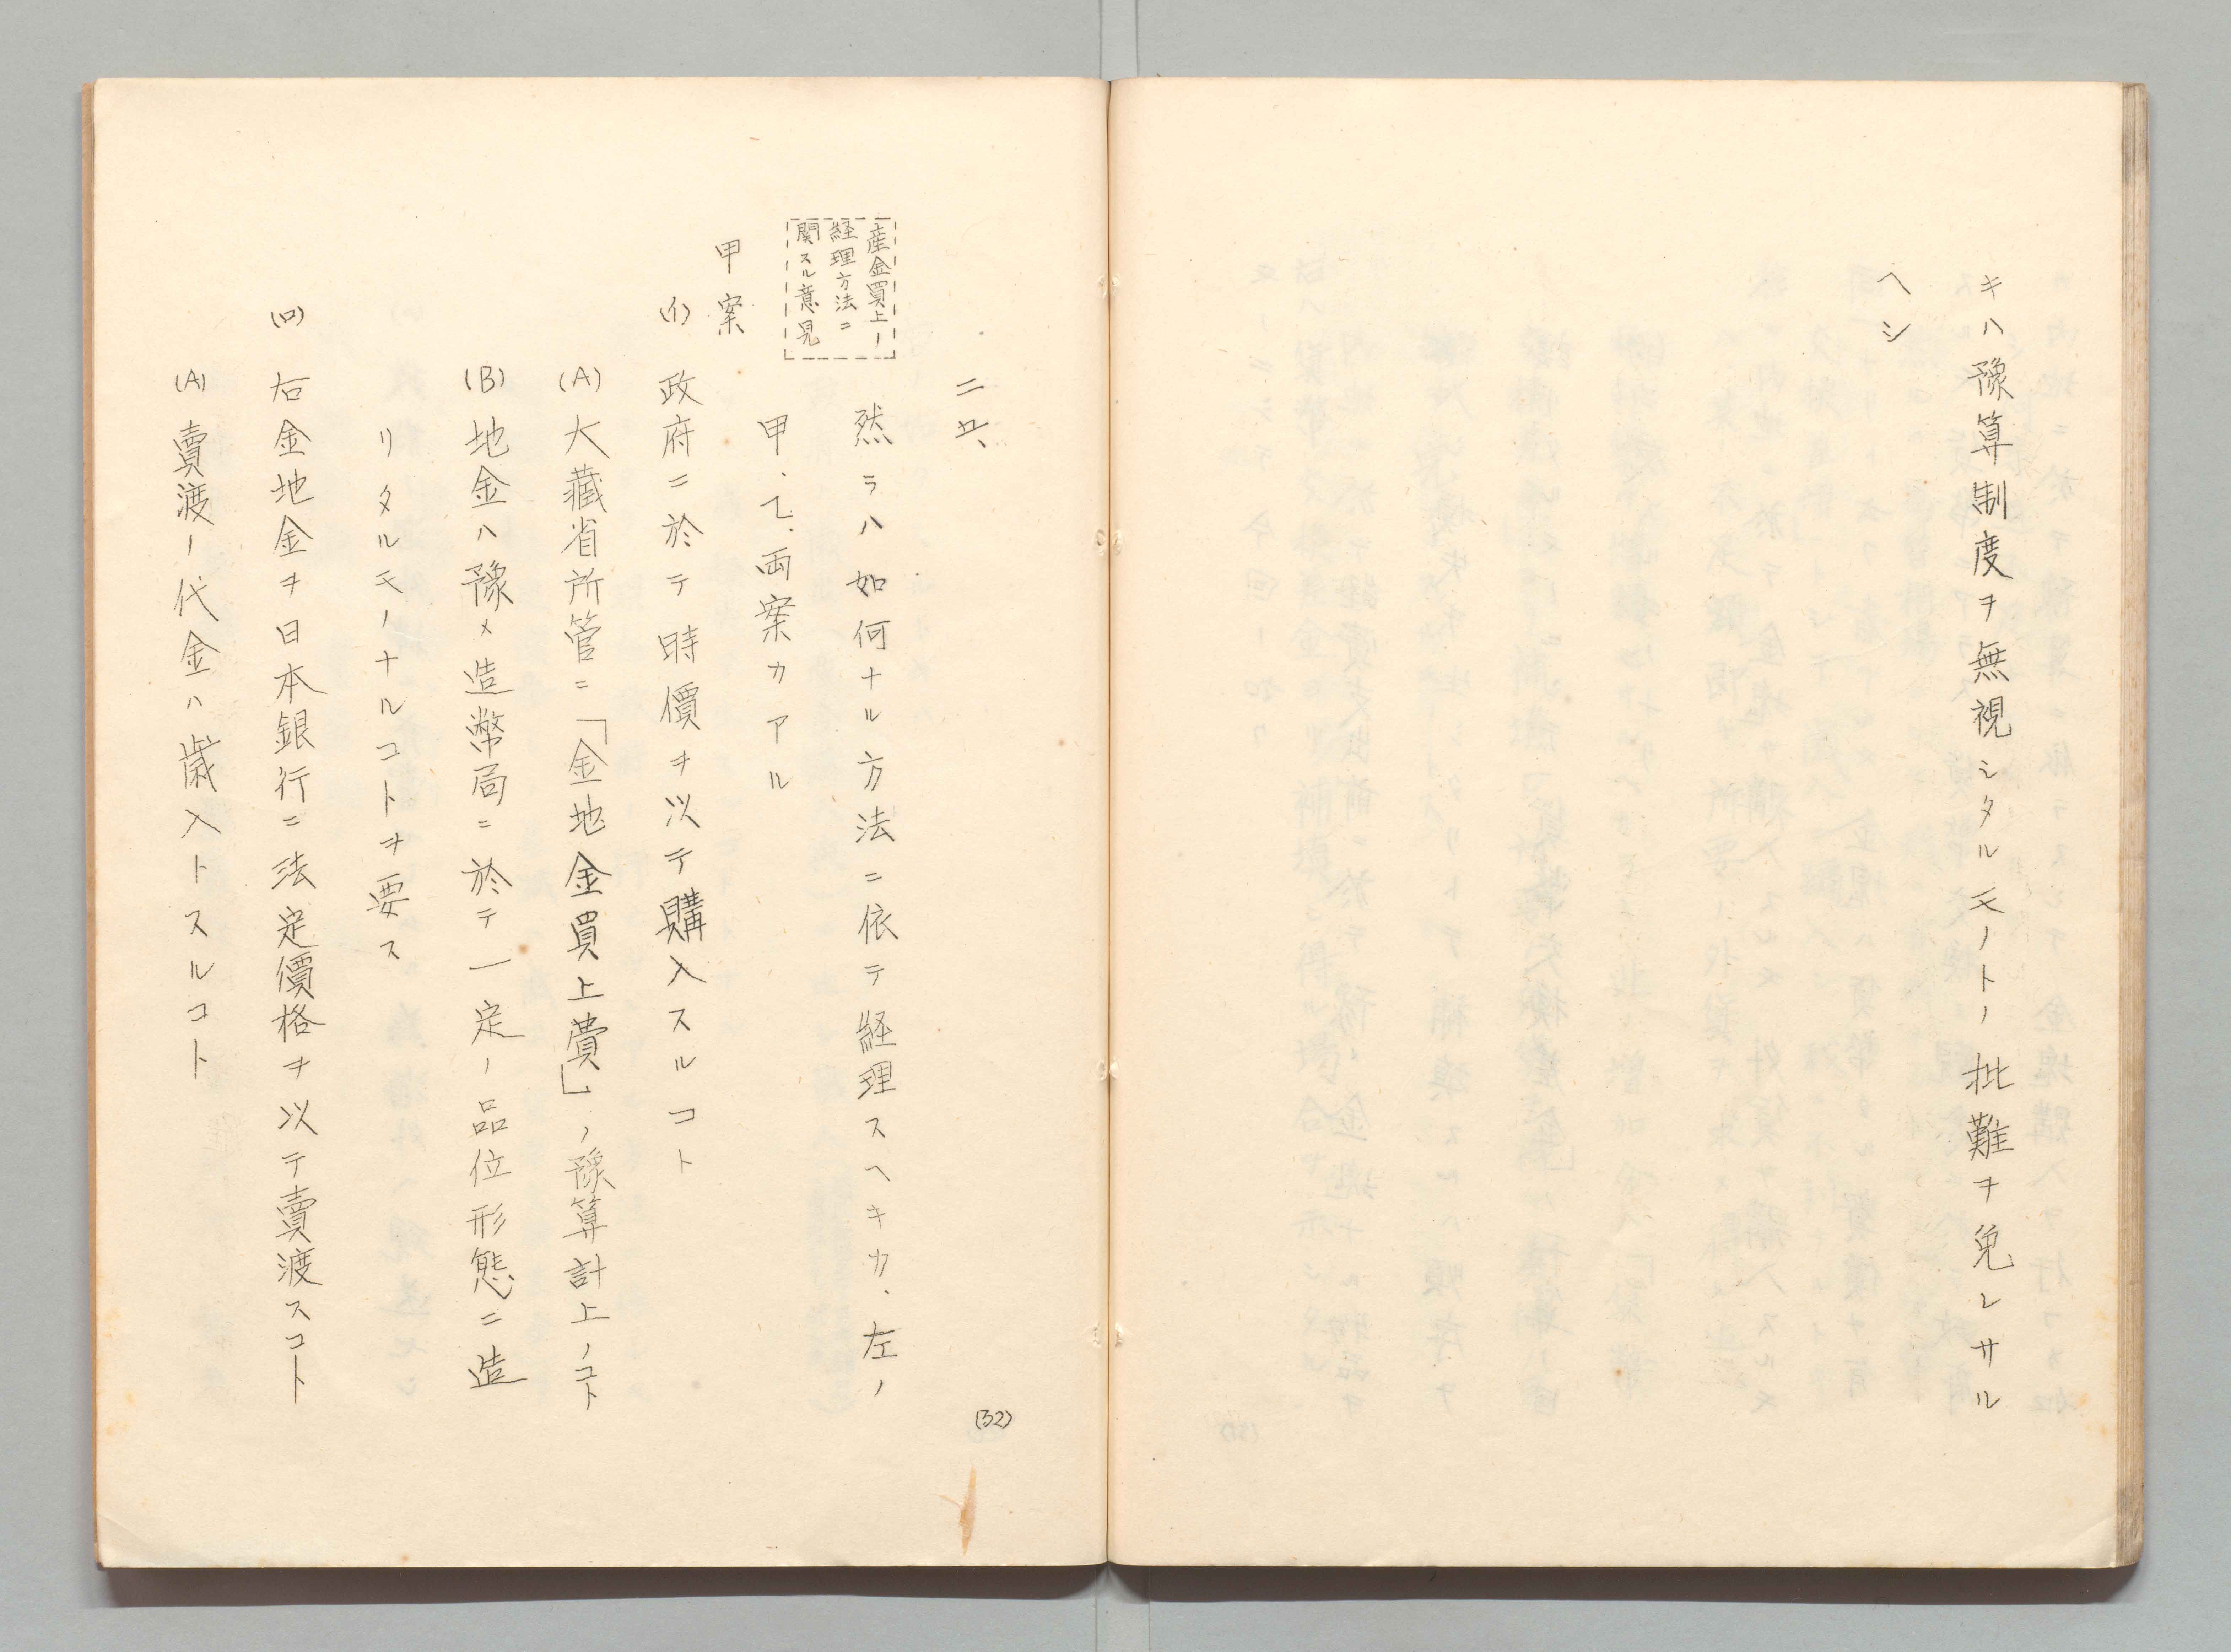 キハ豫算制度ヲ無視シタルモノトノ批難ヲ免レサル
ヘシ
(32)
二五、
産金買上ノ
経理方法ニ
関スル意見
然ラハ如何ナル方法ニ依テ経理スヘキカ、左ノ
甲、乙、両案カアル
甲案
(イ) 政府ニ於テ時價ヲ以テ購入スルコト
(A) 大藏省所管ニ「金地金買上費」ノ豫算計上ノコト
(B) 地金ハ豫メ造幣局ニ於テ一定ノ品位形態ニ造
リタルモノナルコトヲ要ス
(ロ) 右金地金ヲ日本銀行ニ法定價格ヲ以テ賣渡スコト
(A) 賣渡ノ代金ハ歳入トスルコト